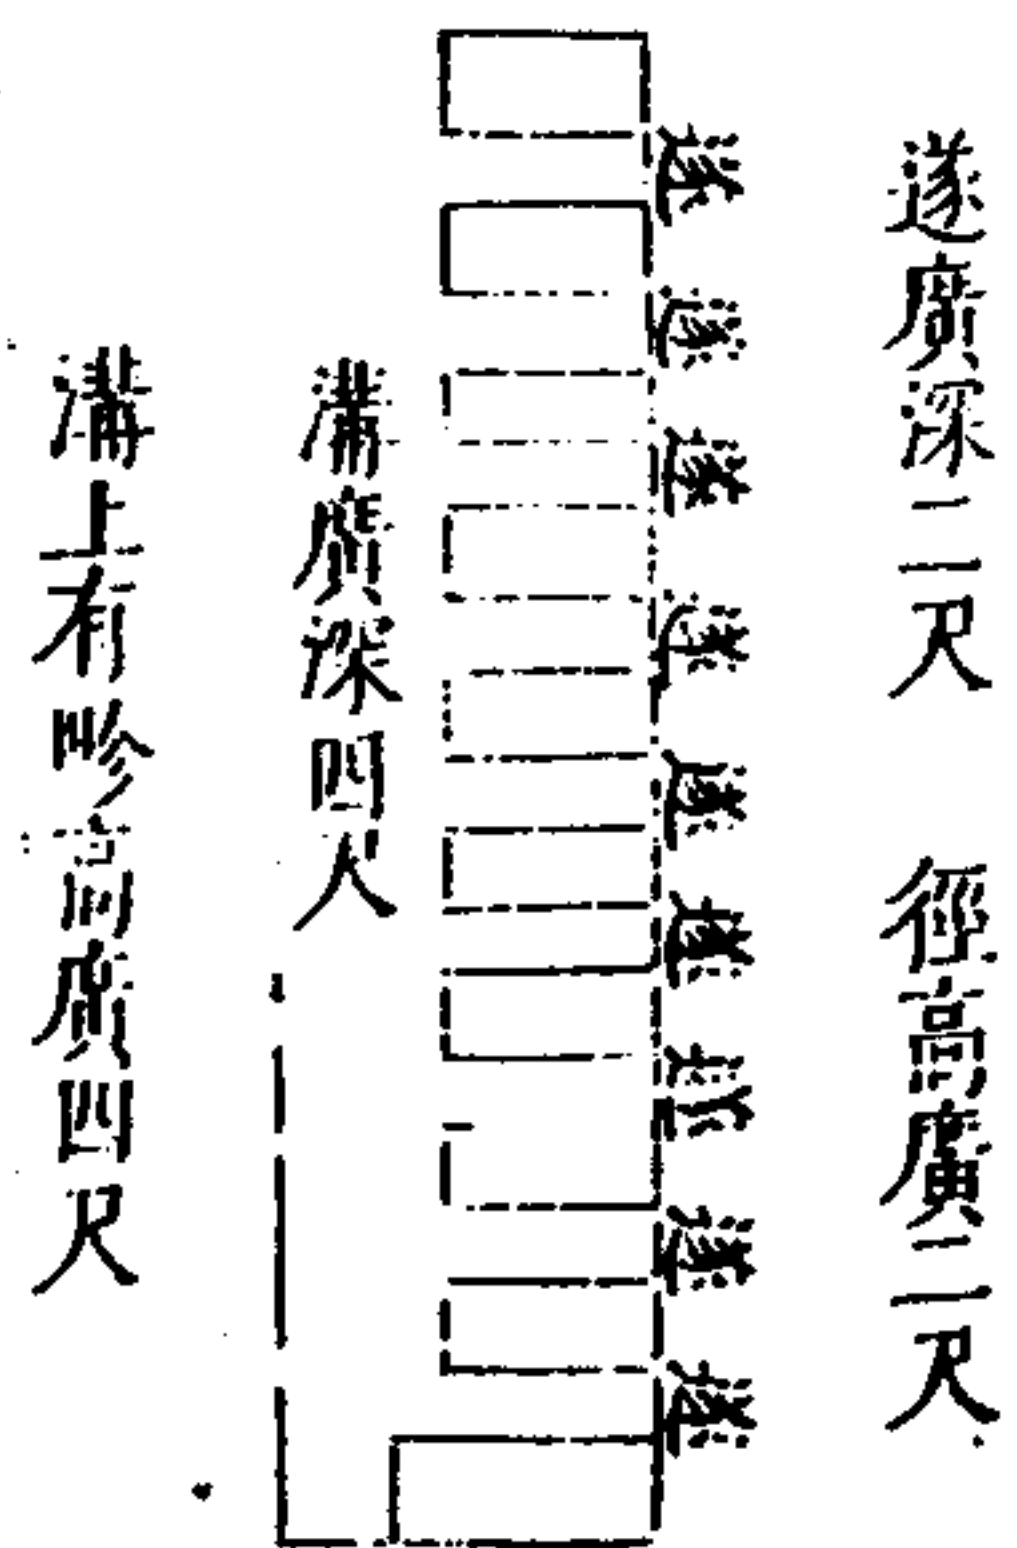 遂廣深二尺　徑高廣二尺
遂
遂
遂
遂
遂
遂
遂
遂
遂
溝廣深四尺
溝上有畛高廣四尺